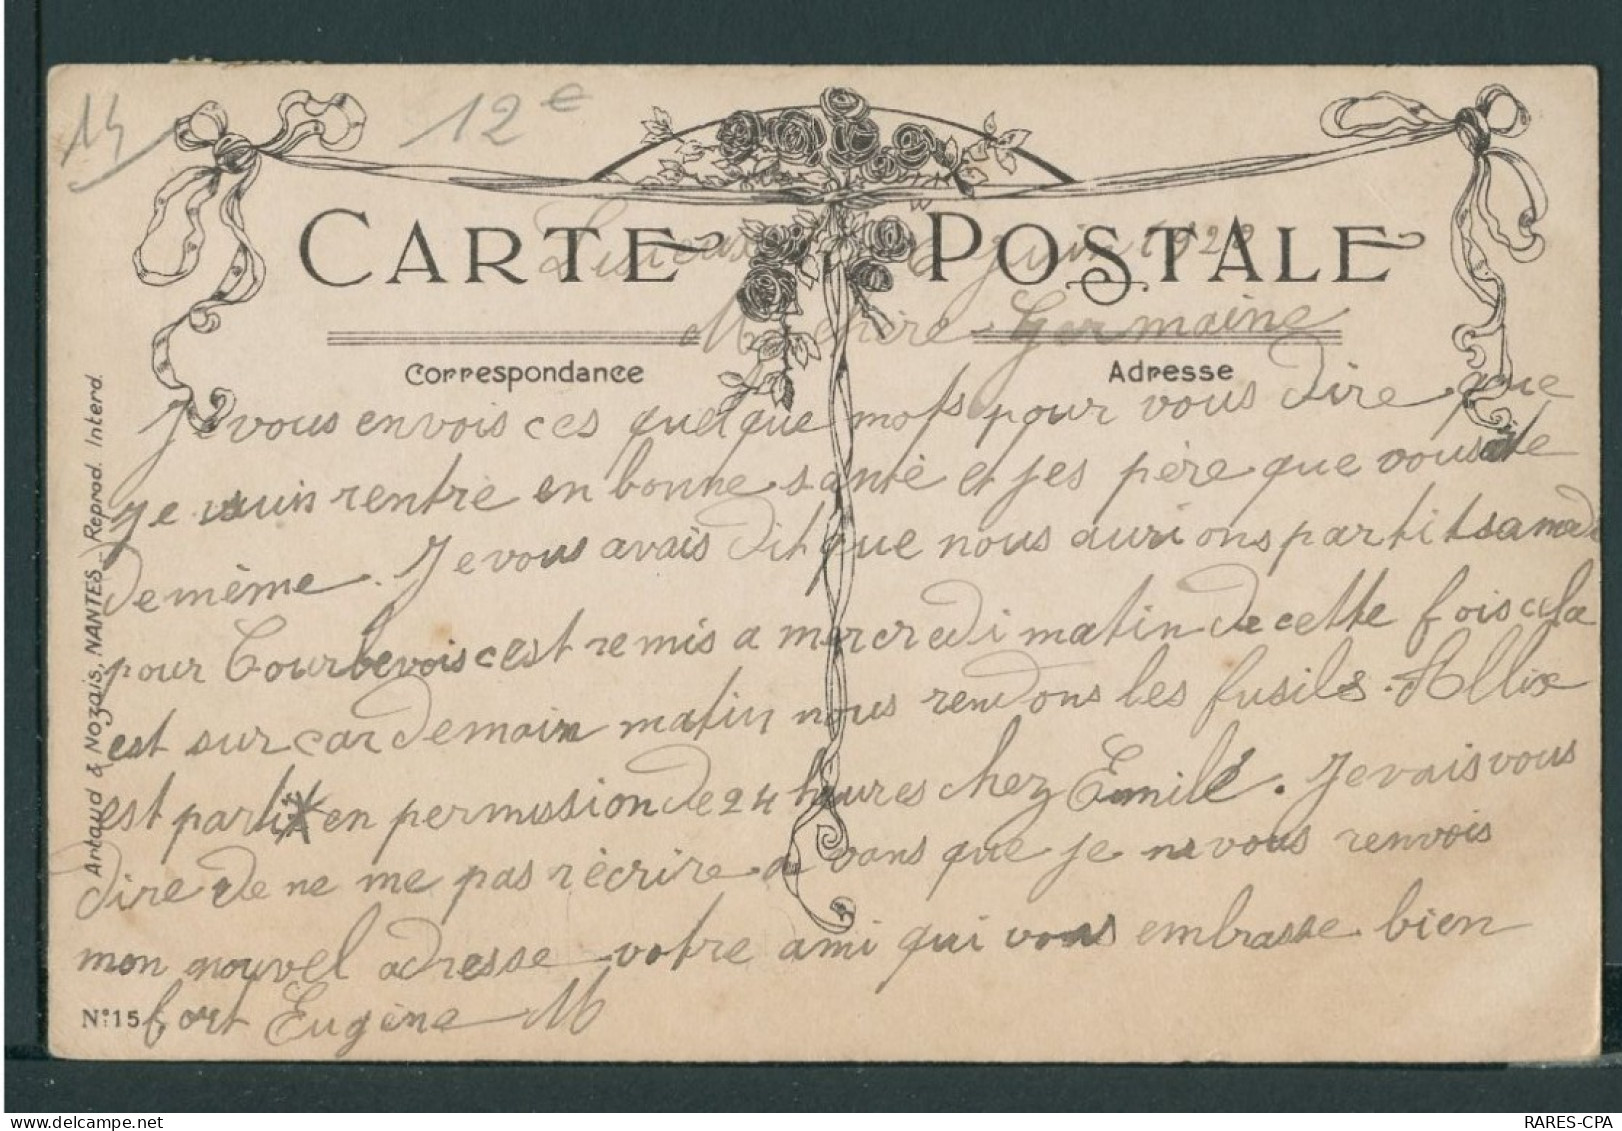 14
12 €
CARTE POSTALE
Lisieux juin 1922
Ma chère Germaine
Correspondance
Adresse
Je vous envois ces quelque mots pour vous dire que
je suis rentre en bonne santé et jes père que vous ète
de mème. Je vous avais dit que nous aurions partit samedi
pour Courbevois c est remis a mercredi matin de cette fois cela
est sur car demain matin nous rendons les fusils. Allix
est partit en permission de 24 heures chez Emile. Je vais vous
dire de ne me pas récrire a vans que je ne vous renvois
mon nouvel adresse votre ami qui vous embrasse bien
fort Eugène M
Nº 15
Artaud & Nozais, NANTES - Reprod. Interd.
RARES-CPA